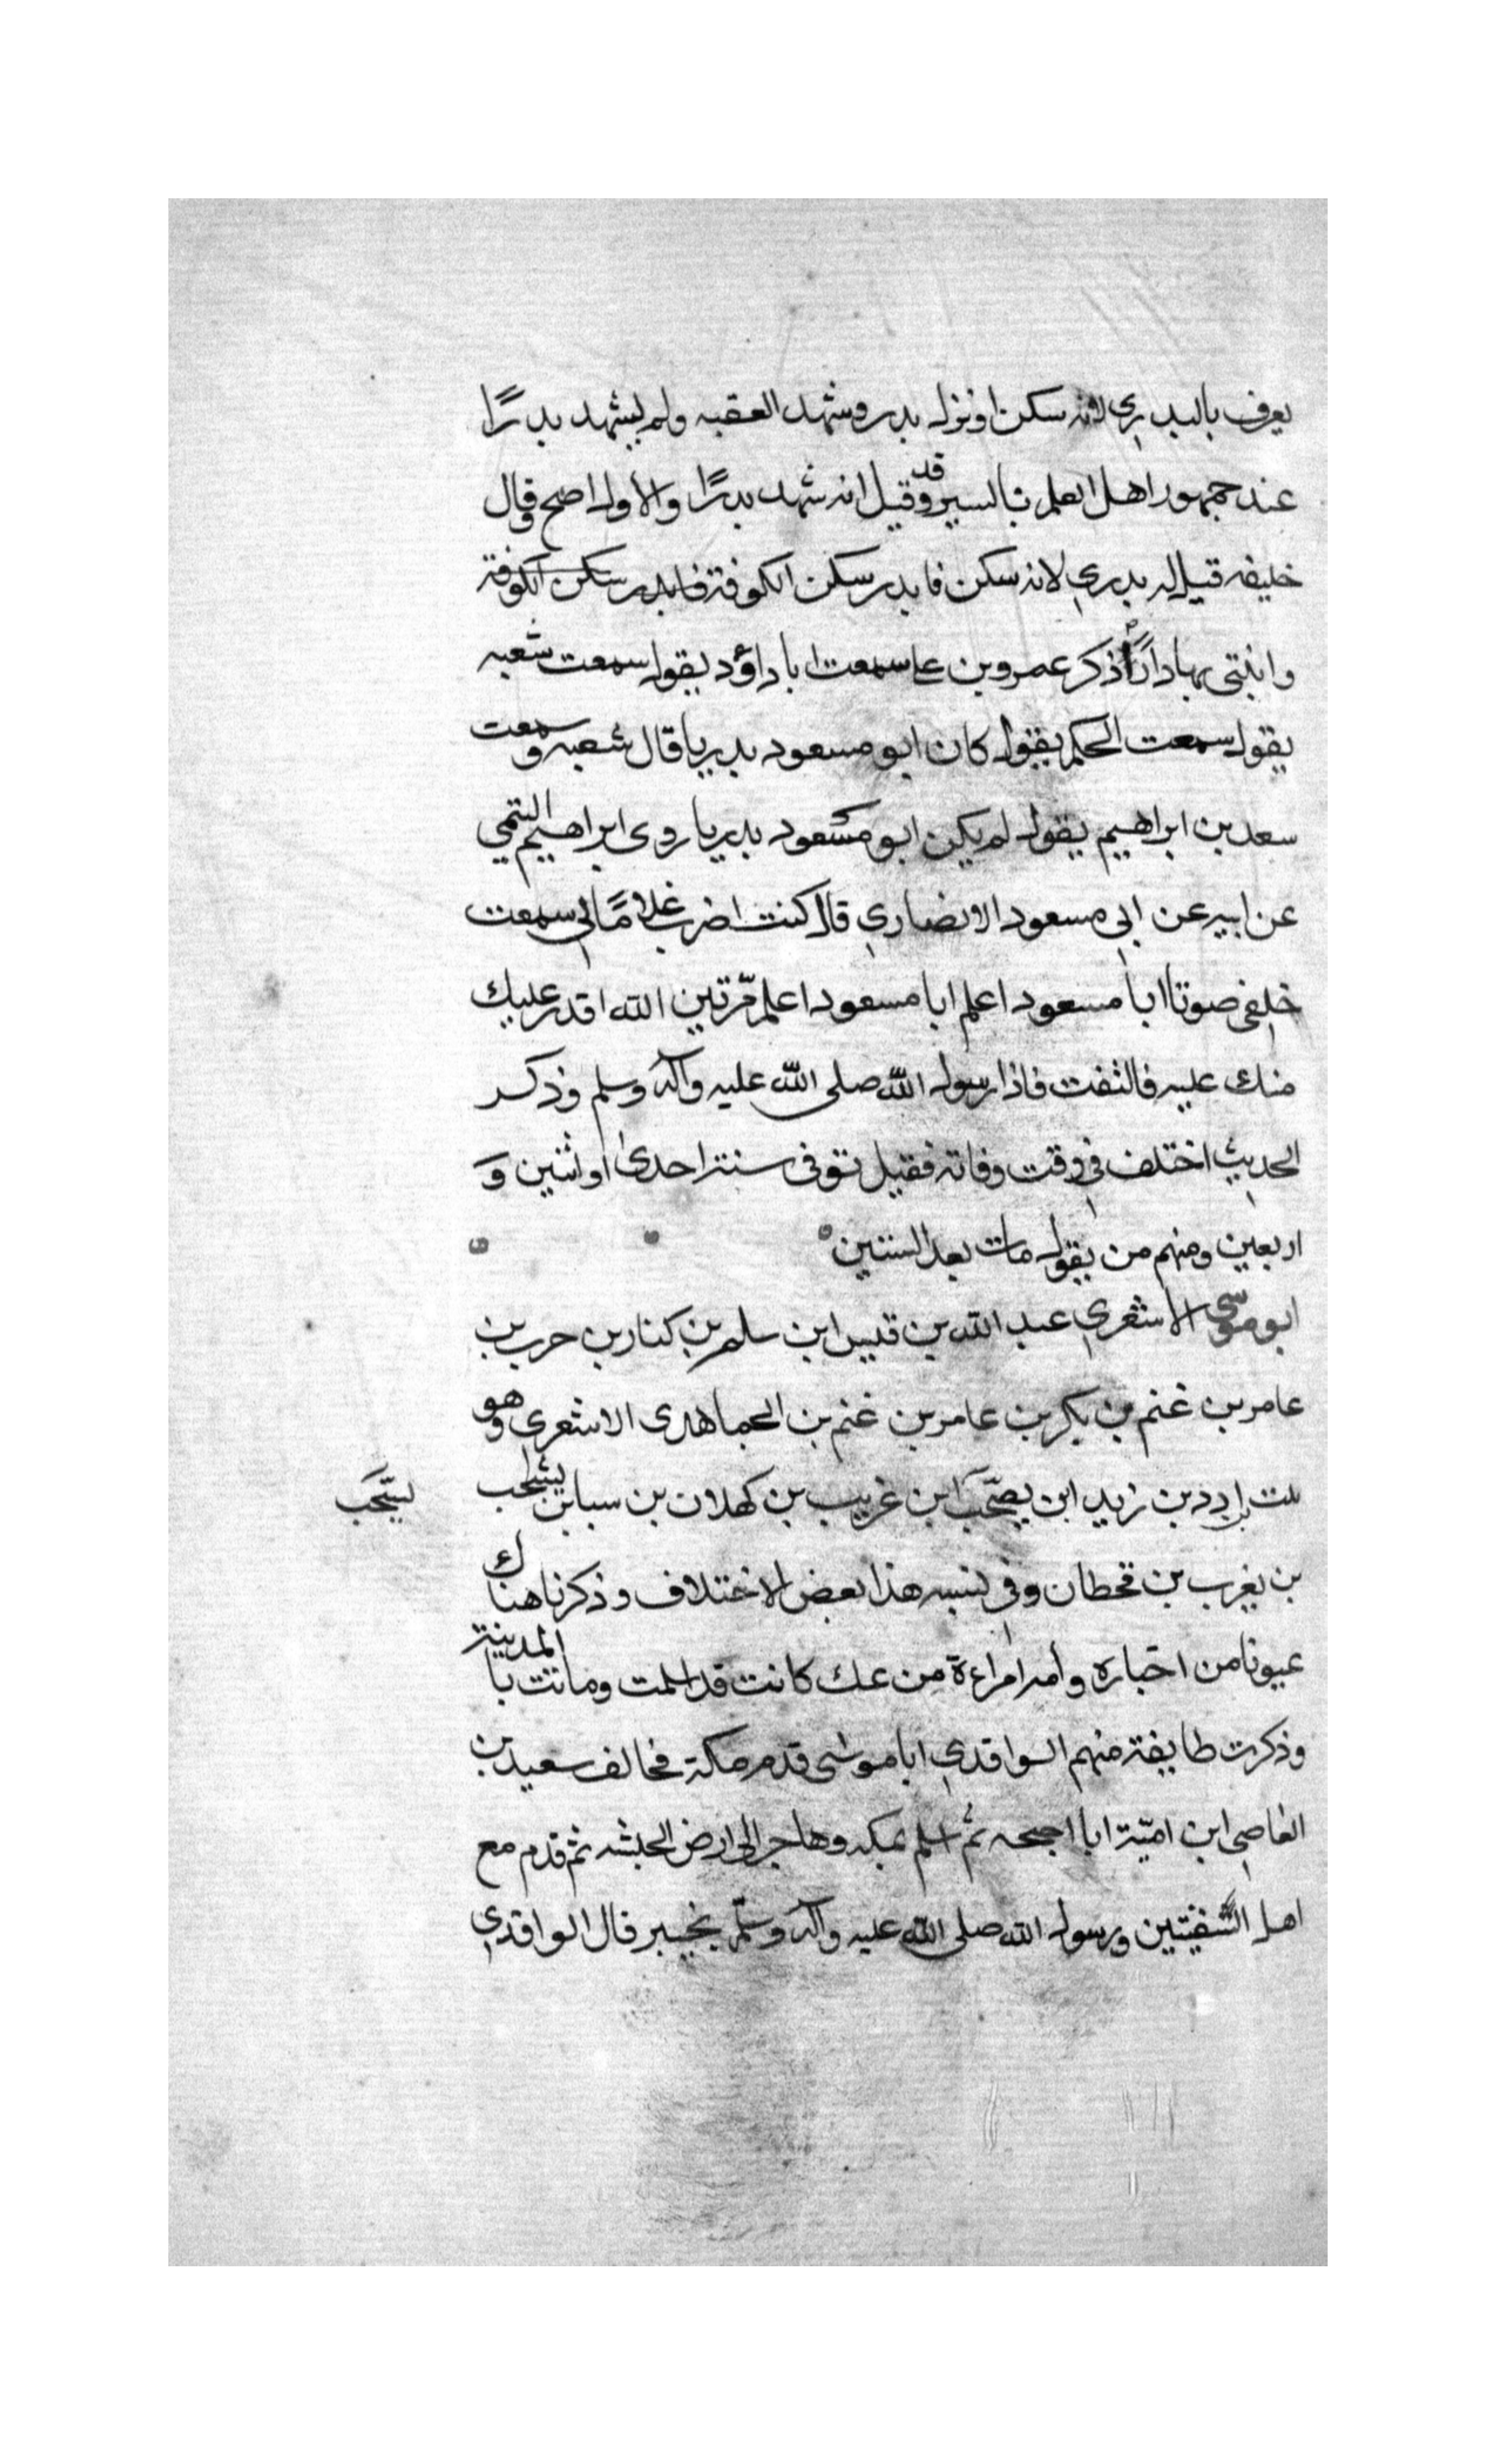 يعرف بالبدري لانه سكن او نزله بدر وشهد العقبه ولم يشهد بدرًا
عند جمهور اهل العلم بالسير وقد قيل انه شهد بدرًا والاول اصح وقال
خليفه قيل له بدري لانه سكن فا بدر سكن الكوفة فا بدر سكن الكوفة
وابتنى بها دارًا ذكر عمرو بن عا سمعت ابا داؤد يقول سمعت شعبه
يقول سمعت الحكم يقول كان ابو مسعود بدريا قال شعبه وسمعت
سعد بن ابراهيم يقول لم يكن ابو مسعود بدريا روى ابراهيم التيمي
عن ابيه عن ابي مسعود الانصاري قال كنت اضرب غلامًا لي سمعت
خلفي صوتا ابا مسعود اعلم ابا مسعود اعلم مرّتين الله اقدر عليك
منك عليه فالتفت فاذا رسول الله صلى الله عليه وآله وسلم وذكر
الحديث اختلف في وقت وفاته فقيل توفى سنة احدى او اثنين و
اربعين ومنهم من يقول مات بعد الستين
ابو موسى الاشعري عبد الله بن قيس ابن سلم بن كنار بن حرب بن
عامر بن غنم بن بكر بن عامر بن غنم بن الجماهدى الاشعرى وهو
بن ادد بن زيد ابن يصحّب ابن غريب بن كهلان بن سبا بن يشحب
يشّحب
بن يغرب بن قحطان وفى نسبه هذا بعض الاختلاف وذكرنا هناك
عيونا من اخباره وأمه امراءة من عك كانت قد اسلمت وماتت بالمدينة
وذكرت طايفة منهم الواقدي ابا موسى قدم مكة فحالف سعيد بن
العاصى ابن اميّة ابا احيحه ثم اسلم بمكه وهاجر الى ارض الحبشه ثم قدم مع
اهل السّفينتين ورسول الله صلى الله عليه وآله وسلّم بخيبر قال الواقدي